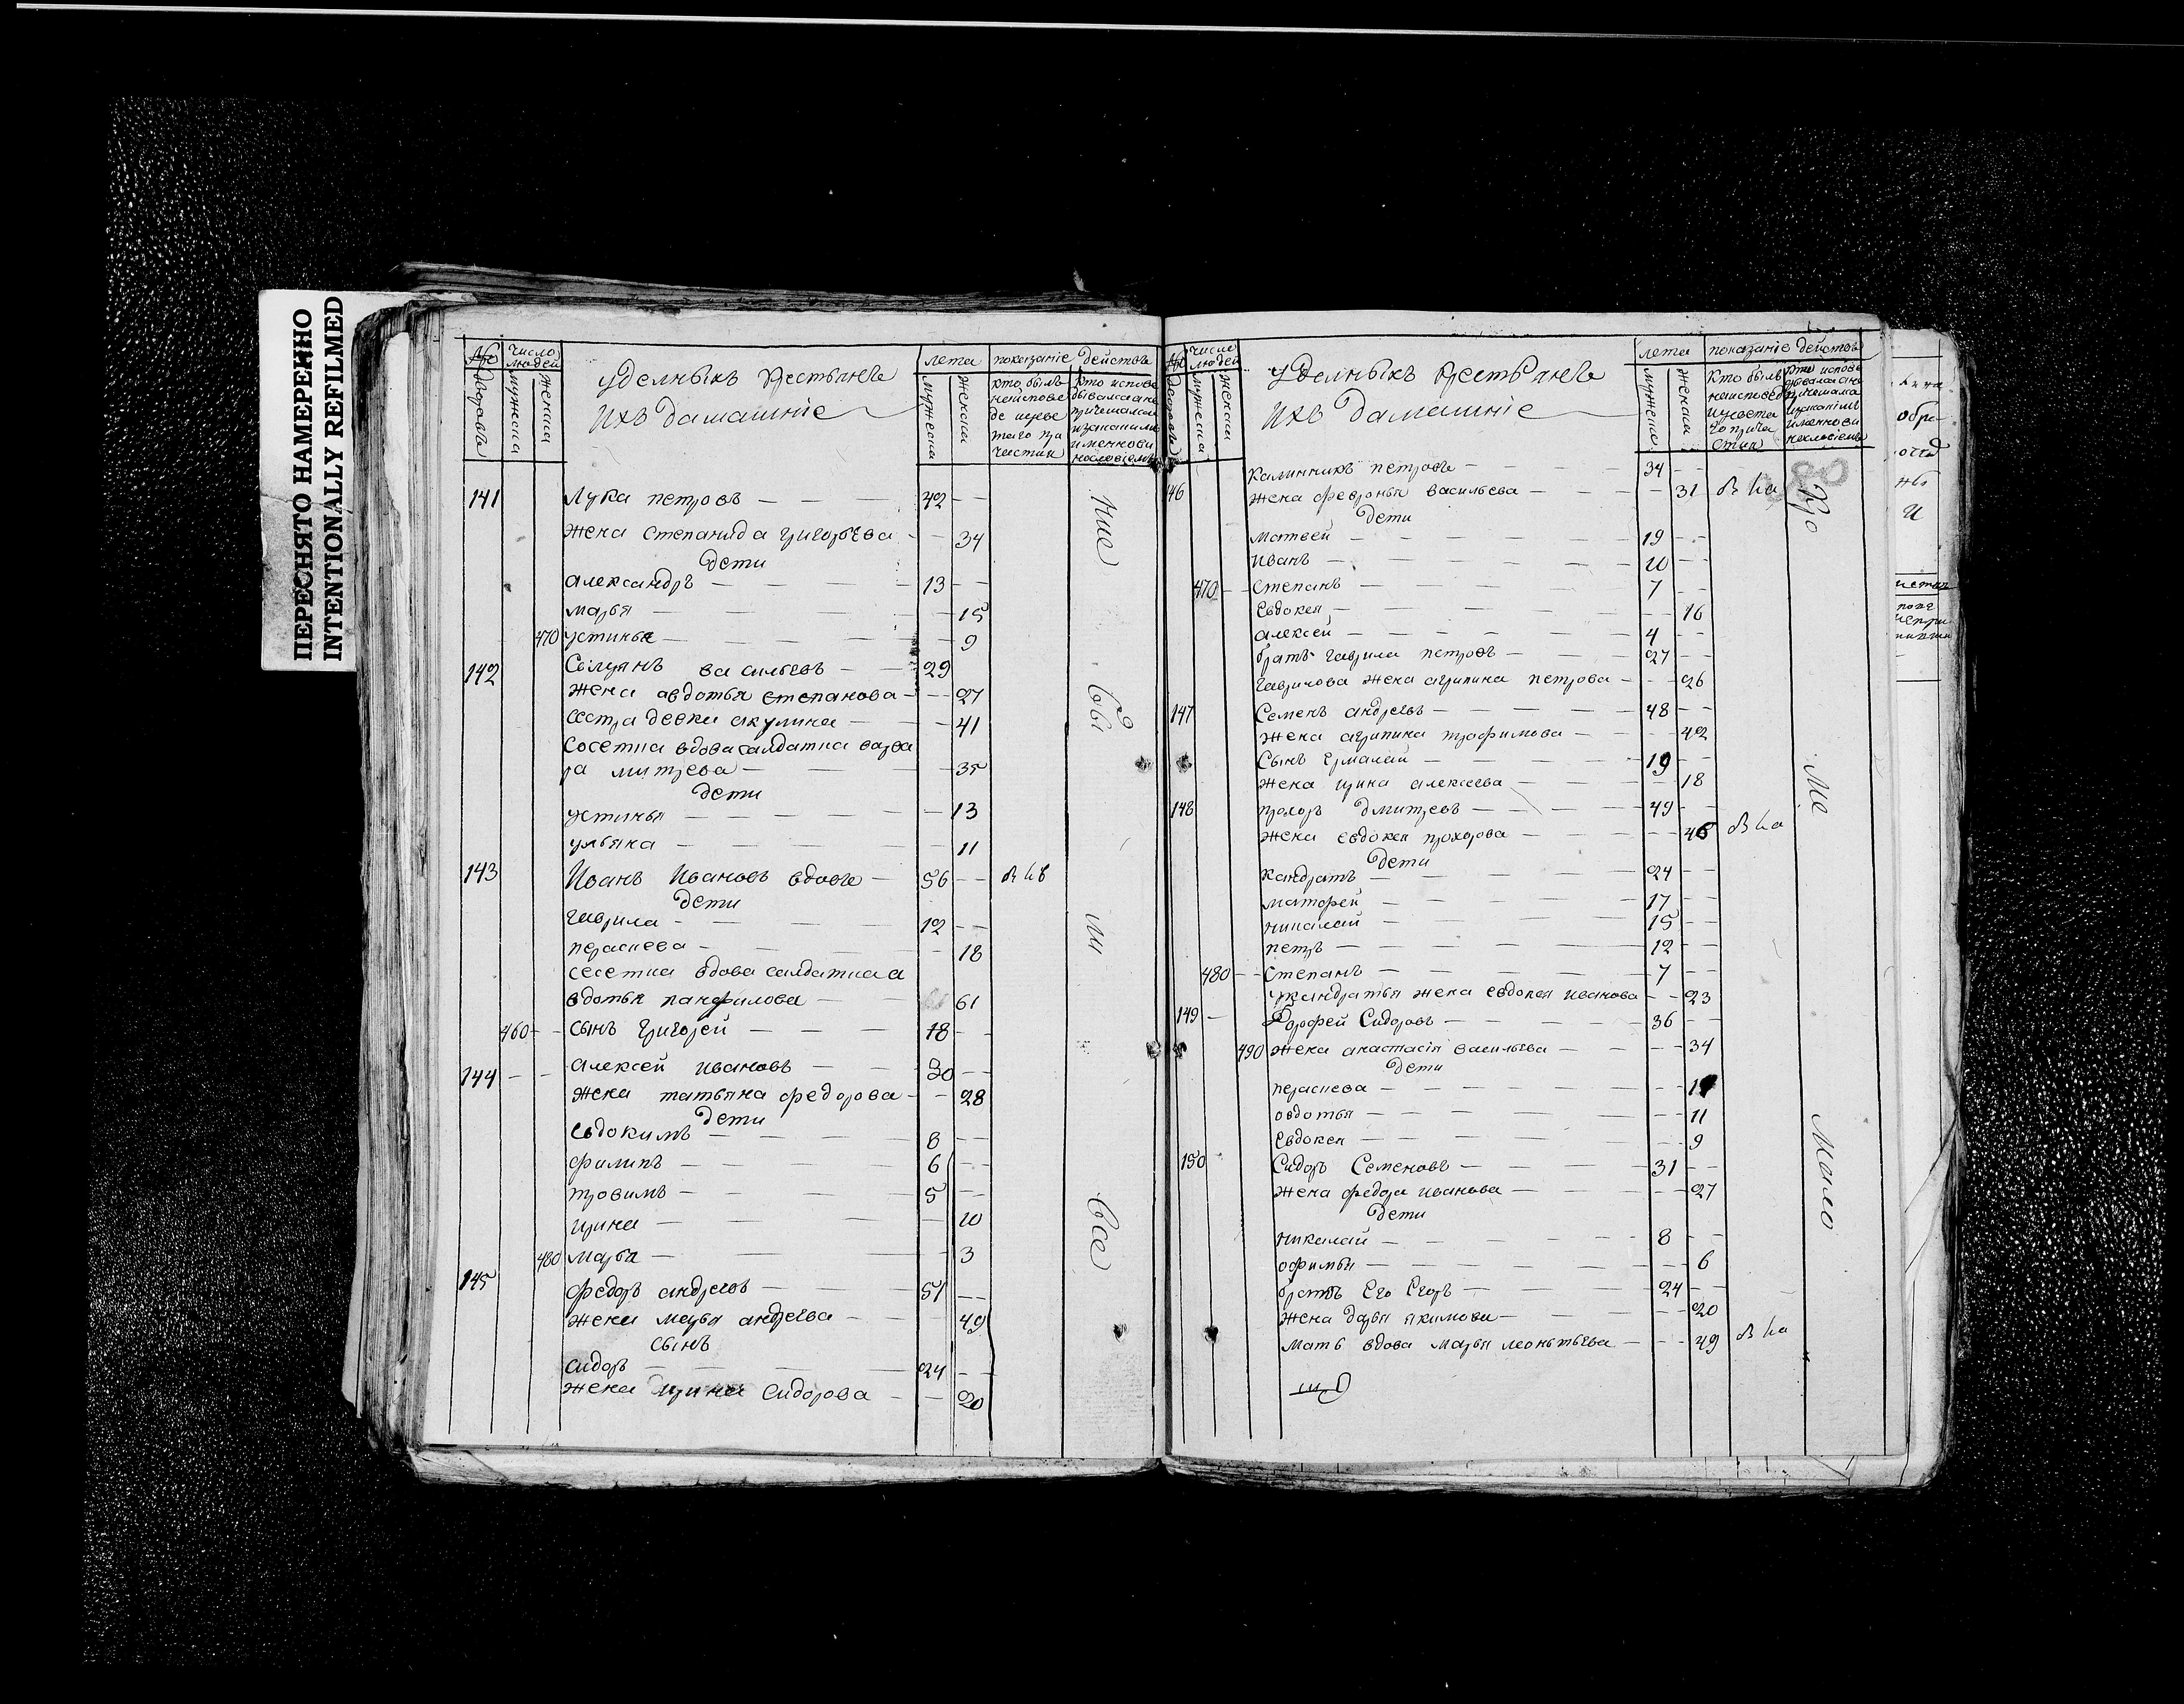 ПЕРЕСНЯТО НАМЕРЕННО
INTENTIONALLY REFILMED
№ дворовъ
число людей
мужеска
женска
уделныхъ крестьянъ
ихъ дамашние
лета
мужеска
женска
показание действъ
141 Лука петровъ — 42
жена степанида григорьева — 34
дети
александръ — 13
марья — 15
470 устинья — 9
142 васильевъ — 29
жена авдотья степанова — 27
сестра девка акулина — 41
сосетка вдова салдаткаварва
ра митрева — 35
дети
устинья — 13
ульяна — 11
143 Иванъ Ивановъ вдовъ — 56
дети
гаврила — 12
праскева — 18
сосетка вдова салдатка а
вдотья панфилова — 61
460 сынъ григорей — 18
144 алексей ивановъ — 30
жена татьяна федорова — 28
дети
евдокимъ — 8
филипъ — 6
трофимъ — 5
ирина — 10
480 марья — 3
145 федоръ андреевъ — 51
жена марья андреева — 49
сынъ
сидоръ — 24
жена ирина сидорова — 20
ние
бы
ли
все
№ дворовъ
число людей
мужеска
женска
уделныхъ крестьянъ
ихъ дамашние
лета
мужеска
женска
показание действъ
146 калинникъ петровъ — 34
жена февронья васильева — 31
дети
матвей — 19
иванъ — 10
470 степанъ — 7
евдокея — 16
алексей — 4
братъ гаврила петровъ — 27
гаврилова жена агрипина петрова — 26
147 Семенъ андреевъ — 48
жена агрипина трафимова — 42
сынъ ермалай — 19
жена ирина алексеева — 18
148 прохоръ дмитревъ — 49
жена евдокея прохорова — 46
дети
кандратъ — 24
матфей — 17
николай — 15
петръ — 12
480 степанъ — 7
укандратья жена евдокея иванова — 23
149 Дорофей Сидоровъ — 36
490 жена анастасия васильева — 34
дети
праскева —
овдотья — 11
евдокея — 9
150 Сидоръ Семеновъ — 31
жена федора иванова — 27
дети
николай — 8
офимья — 6
братъ его егоръ — 24
жена дарья якимова — 20
мать вдова марья леонтьева — 49
кро
ме
мало